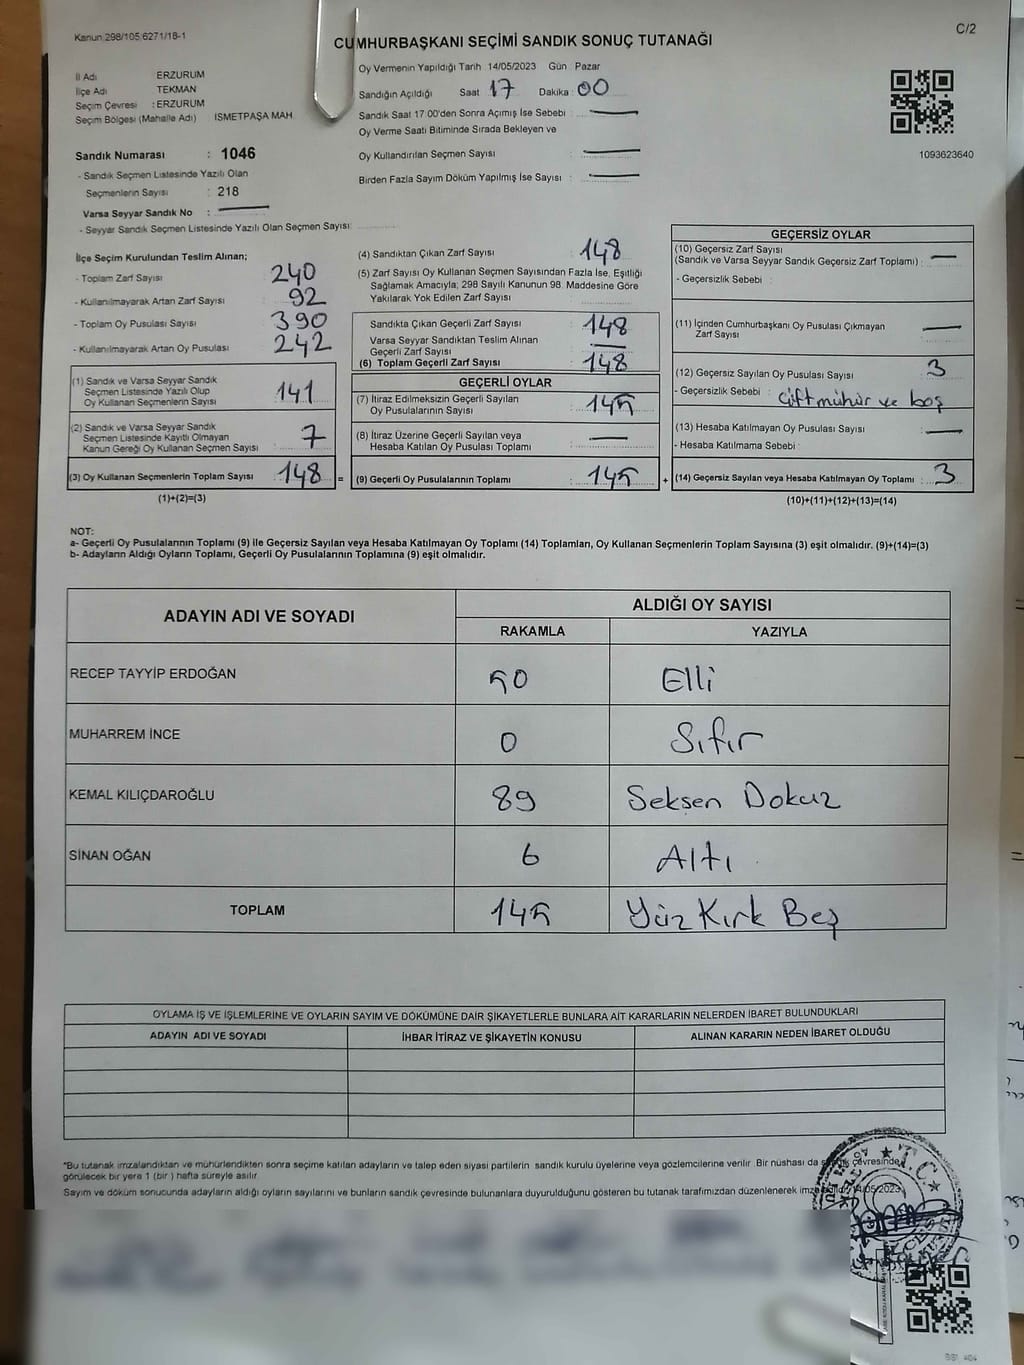 Kanun 298/105 6271/18-1
C/2
CUMHURBAŞKANI SEÇİMİ SANDIK SONUÇ TUTANAĞI
İl Adı ERZURUM
İlçe Adı TEKMAN
Seçim Çevresi : ERZURUM
Seçim Bölgesi (Mahalle Adı) ISMETPAŞA MAH.
Sandık Numarası : 1046
- Sandık Seçmen Listesinde Yazılı Olan
Seçmenlerin Sayısı : 218
Varsa Seyyar Sandık No :
- Seyyar Sandık Seçmen Listesinde Yazılı Olan Seçmen Sayısı:
Oy Vermenin Yapıldığı Tarih 14/05/2023 Gün Pazar
Sandığın Açıldığı Saat 17 Dakika 00
Sandık Saat 17:00'den Sonra Açımış İse Sebebi :
Oy Verme Saati Bitiminde Sırada Bekleyen ve
Oy Kullandırılan Seçmen Sayısı :
Birden Fazla Sayım Döküm Yapılmış İse Sayısı :
1093623640
İlçe Seçim Kurulundan Teslim Alınan;
- Toplam Zarf Sayısı 240
- Kullanılmayarak Artan Zarf Sayısı 92
- Toplam Oy Pusulası Sayısı 390
- Kullanılmayarak Artan Oy Pusulası 242
(1) Sandık ve Varsa Seyyar Sandık
Seçmen Listesinde Yazılı Olup
Oy Kullanan Seçmenlerin Sayısı 141
(2) Sandık ve Varsa Seyyar Sandık
Seçmen Listesinde Kayıtlı Olmayan
Kanun Gereği Oy Kullanan Seçmen Sayısı 7
(3) Oy Kullanan Seçmenlerin Toplam Sayısı 148 =
(1)+(2)=(3)
(4) Sandıktan Çıkan Zarf Sayısı 148
(5) Zarf Sayısı Oy Kullanan Seçmen Sayısından Fazla İse, Eşitliği
Sağlamak Amacıyla; 298 Sayılı Kanunun 98. Maddesine Göre
Yakılarak Yok Edilen Zarf Sayısı :
Sandıkta Çıkan Geçerli Zarf Sayısı 148
Varsa Seyyar Sandıktan Teslim Alınan
Geçerli Zarf Sayısı
(6) Toplam Geçerli Zarf Sayısı 148
GEÇERLİ OYLAR
(7) İtiraz Edilmeksizin Geçerli Sayılan
Oy Pusulalarının Sayısı : 145
(8) İtiraz Üzerine Geçerli Sayılan veya
Hesaba Katılan Oy Pusulası Toplamı :
(9) Geçerli Oy Pusulalarının Toplamı : 145 +
GEÇERSİZ OYLAR
(10) Geçersiz Zarf Sayısı
(Sandık ve Varsa Seyyar Sandık Geçersiz Zarf Toplamı) :
- Geçersizlik Sebebi :
(11) İçinden Cumhurbaşkanı Oy Pusulası Çıkmayan
Zarf Sayısı
(12) Geçersiz Sayılan Oy Pusulası Sayısı 3
- Geçersizlik Sebebi : Çift mühür ve boş
(13) Hesaba Katılmayan Oy Pusulası Sayısı :
- Hesaba Katılmama Sebebi :
(14) Geçersiz Sayılan veya Hesaba Katılmayan Oy Toplamı : 3
(10)+(11)+(12)+(13)=(14)
NOT:
a- Geçerli Oy Pusulalarının Toplamı (9) ile Geçersiz Sayılan veya Hesaba Katılmayan Oy Toplamı (14) Toplamları, Oy Kullanan Seçmenlerin Toplam Sayısına (3) eşit olmalıdır. (9)+(14)=(3)
b- Adayların Aldığı Oyların Toplamı, Geçerli Oy Pusulalarının Toplamına (9) eşit olmalıdır.
ADAYIN ADI VE SOYADI
ALDIĞI OY SAYISI
RAKAMLA YAZIYLA
RECEP TAYYİP ERDOĞAN 50 Elli
MUHARREM İNCE 0 Sıfır
KEMAL KILIÇDAROĞLU 89 Seksen Dokuz
SİNAN OĞAN 6 Altı
TOPLAM 145 Yüz Kırk Beş
OYLAMA İŞ VE İŞLEMLERİNE VE OYLARIN SAYIM VE DÖKÜMÜNE DAİR ŞİKAYETLERLE BUNLARA AİT KARARLARIN NELERDEN İBARET BULUNDUKLARI
ADAYIN ADI VE SOYADI İHBAR İTİRAZ VE ŞİKAYETİN KONUSU ALINAN KARARIN NEDEN İBARET OLDUĞU
*Bu tutanak imzalandıktan ve mühürlendikten sonra seçime katılan adayların ve talep eden siyasi partilerin sandık kurulu üyelerine veya gözlemcilerine verilir. Bir nüshası da sandık çevresinde
görülecek bir yere 1 (bir ) hafta süreyle asılır.
Sayım ve döküm sonucunda adayların aldığı oyların sayılarını ve bunların sandık çevresinde bulunanlara duyurulduğunu gösteren bu tutanak tarafımızdan düzenlenerek 14/05/2023
T.C.